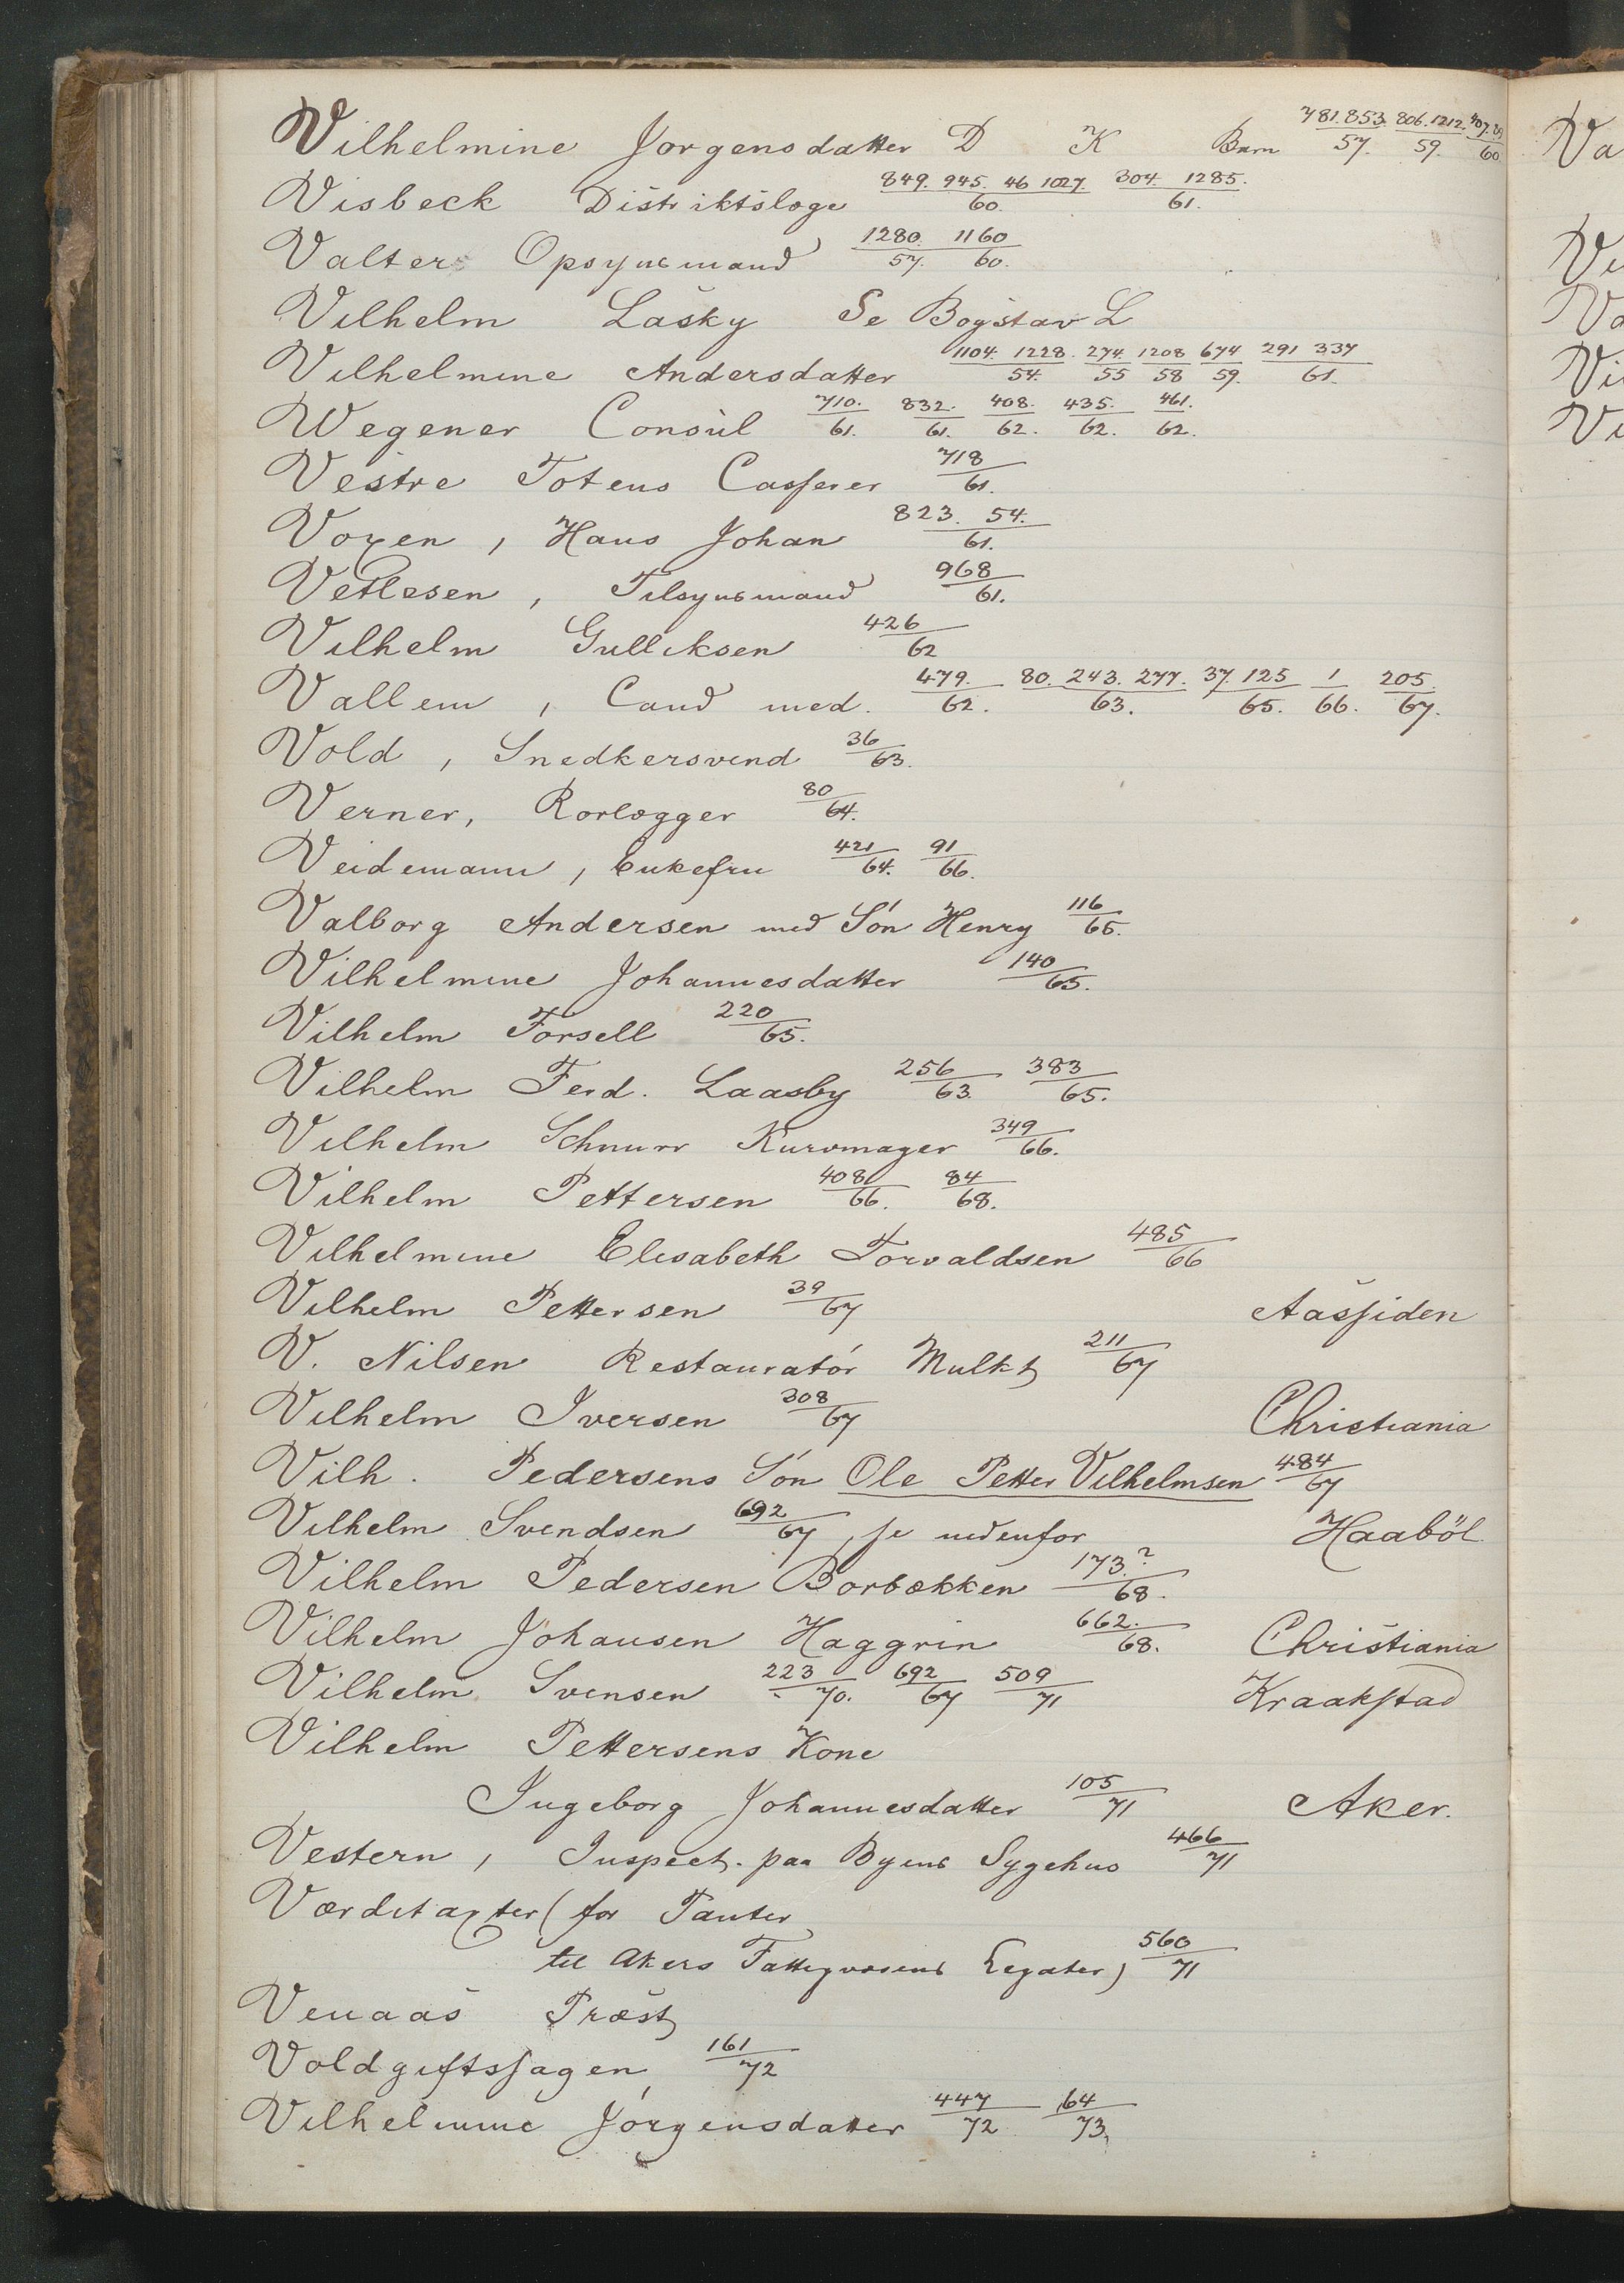 Vilhelmine Jorgensdatter D K Barn 781. 853. / 57. 806. 1212. / 59. / 60
Visbeck Distriktslæge 849. 945. 46 1027. / 60. 304. 1285. / 61.
Valters Opsynsmand 1280. / 57. 1160 / 60.
Vilhelm Lasky Se Bogstav L
Vilhelmine Andersdatter 1104. 1228. / 54. 274. / 55 1208 / 58 674 / 59. 291 337 / 61.
Wegener Consul 710. / 61. 832. / 61. 408. / 62. 435. / 62. 461. / 62.
Vestre Totens Casserer 718 / 61.
Voxen, Hans Johan 823. 54. / 61.
Vetlesen, Tilsynsmand 968 / 61.
Vilhelm Gulliksen 426 / 62
Vallem, Cand med. 479. / 62. 80. 243. 277. / 63. 37. 125 / 65. 1 / 66. 205. / 67.
Vold, Snedkersvend 36 / 63.
Verner, Rorlægger 80 / 64.
Veidemann, Enkefru 421 / 64. 91 / 66.
Valborg Andersen med Són Henry 116 / 65.
Vilhelmine Johannesdatter 140 / 65.
Vilhelm Forsell 220 / 65.
Vilhelm Ferd. Laasby 256 / 63. 383 / 65.
Vilhelm Schnurr Kurvmager 349 / 66.
Vilhelm Pettersen 408 / 66. 84 / 68.
Vilhelmine Elisabeth Torvaldsen 485 / 66
Vilhelm Pettersen 39 / 67 Aassiden
V. Nilsen Restauratór Mulkt 211 / 67
Vilhelm Iversen 308 / 67 Christiania
Vilh. Pedersens Són Ole Petter Vilhelmsen 484 / 67
Vilhelm Svendsen 692 / 67, se nedenfor Haaböl
Vilhelm Pedersen Borbækken 173.? / 68.
Vilhelm Johansen Haggrin 662. / 68. Christiania
Vilhelm Svensen 223 / 70. 692 / 67 509 / 71 Kraakstad
Vilhelm Pettersens Kone
Ingeborg Johannesdatter 105 / 71 Aker.
Vestern, Inspect. paa Byens Sygehus 466 / 71
Værditaxter (for Panter
til Akers Fattigvæsens Legater) 560 / 71
Venaas Præst
Voldgiftssagen 161 / 72
Vilhelmine Jórgensdatter 447 / 72 64 / 73,
Va
Ve
Va
Vi
Vi